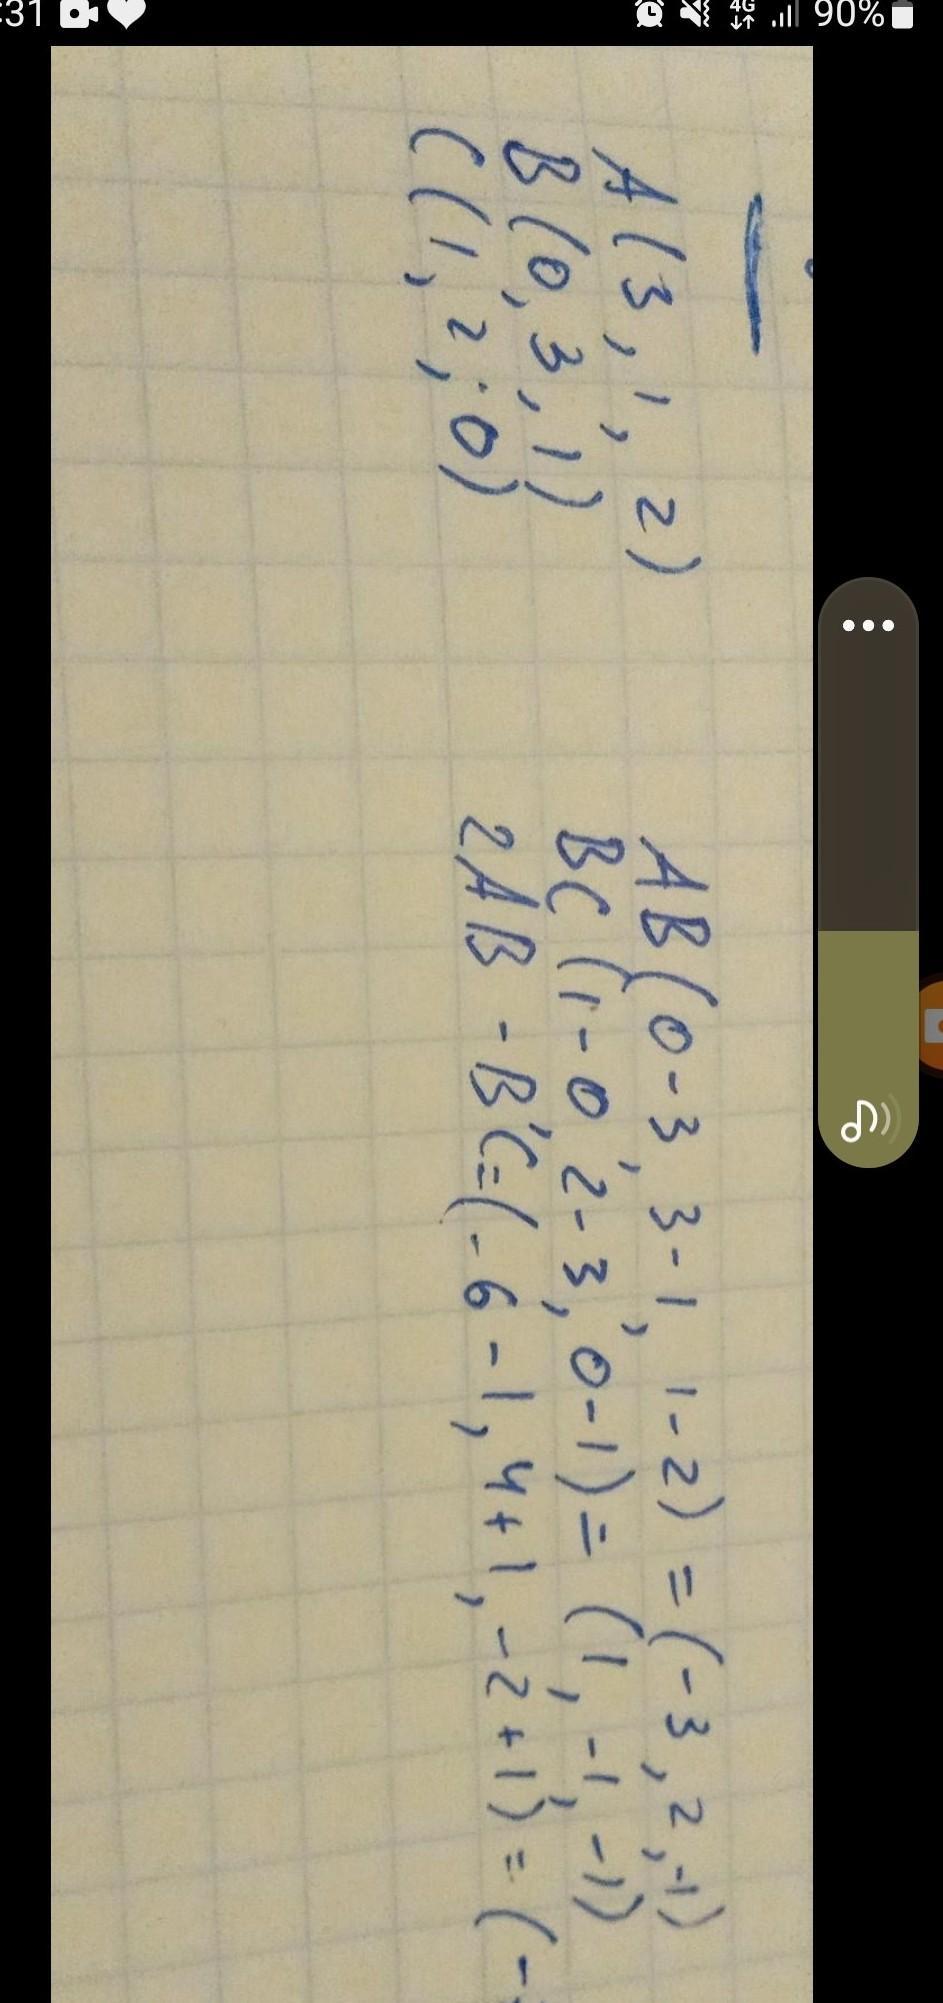 :31
4G
90%
A(3, 1, 2)
B(0, 3, 1)
C(1, 2, 0)
AB(0-3, 3-1, 1-2) = (-3, 2, -1)
BC(1-0, 2-3, 0-1) = (1, -1, -1)
2AB - BC = (-6-1, 4+1, -2+1) = (-